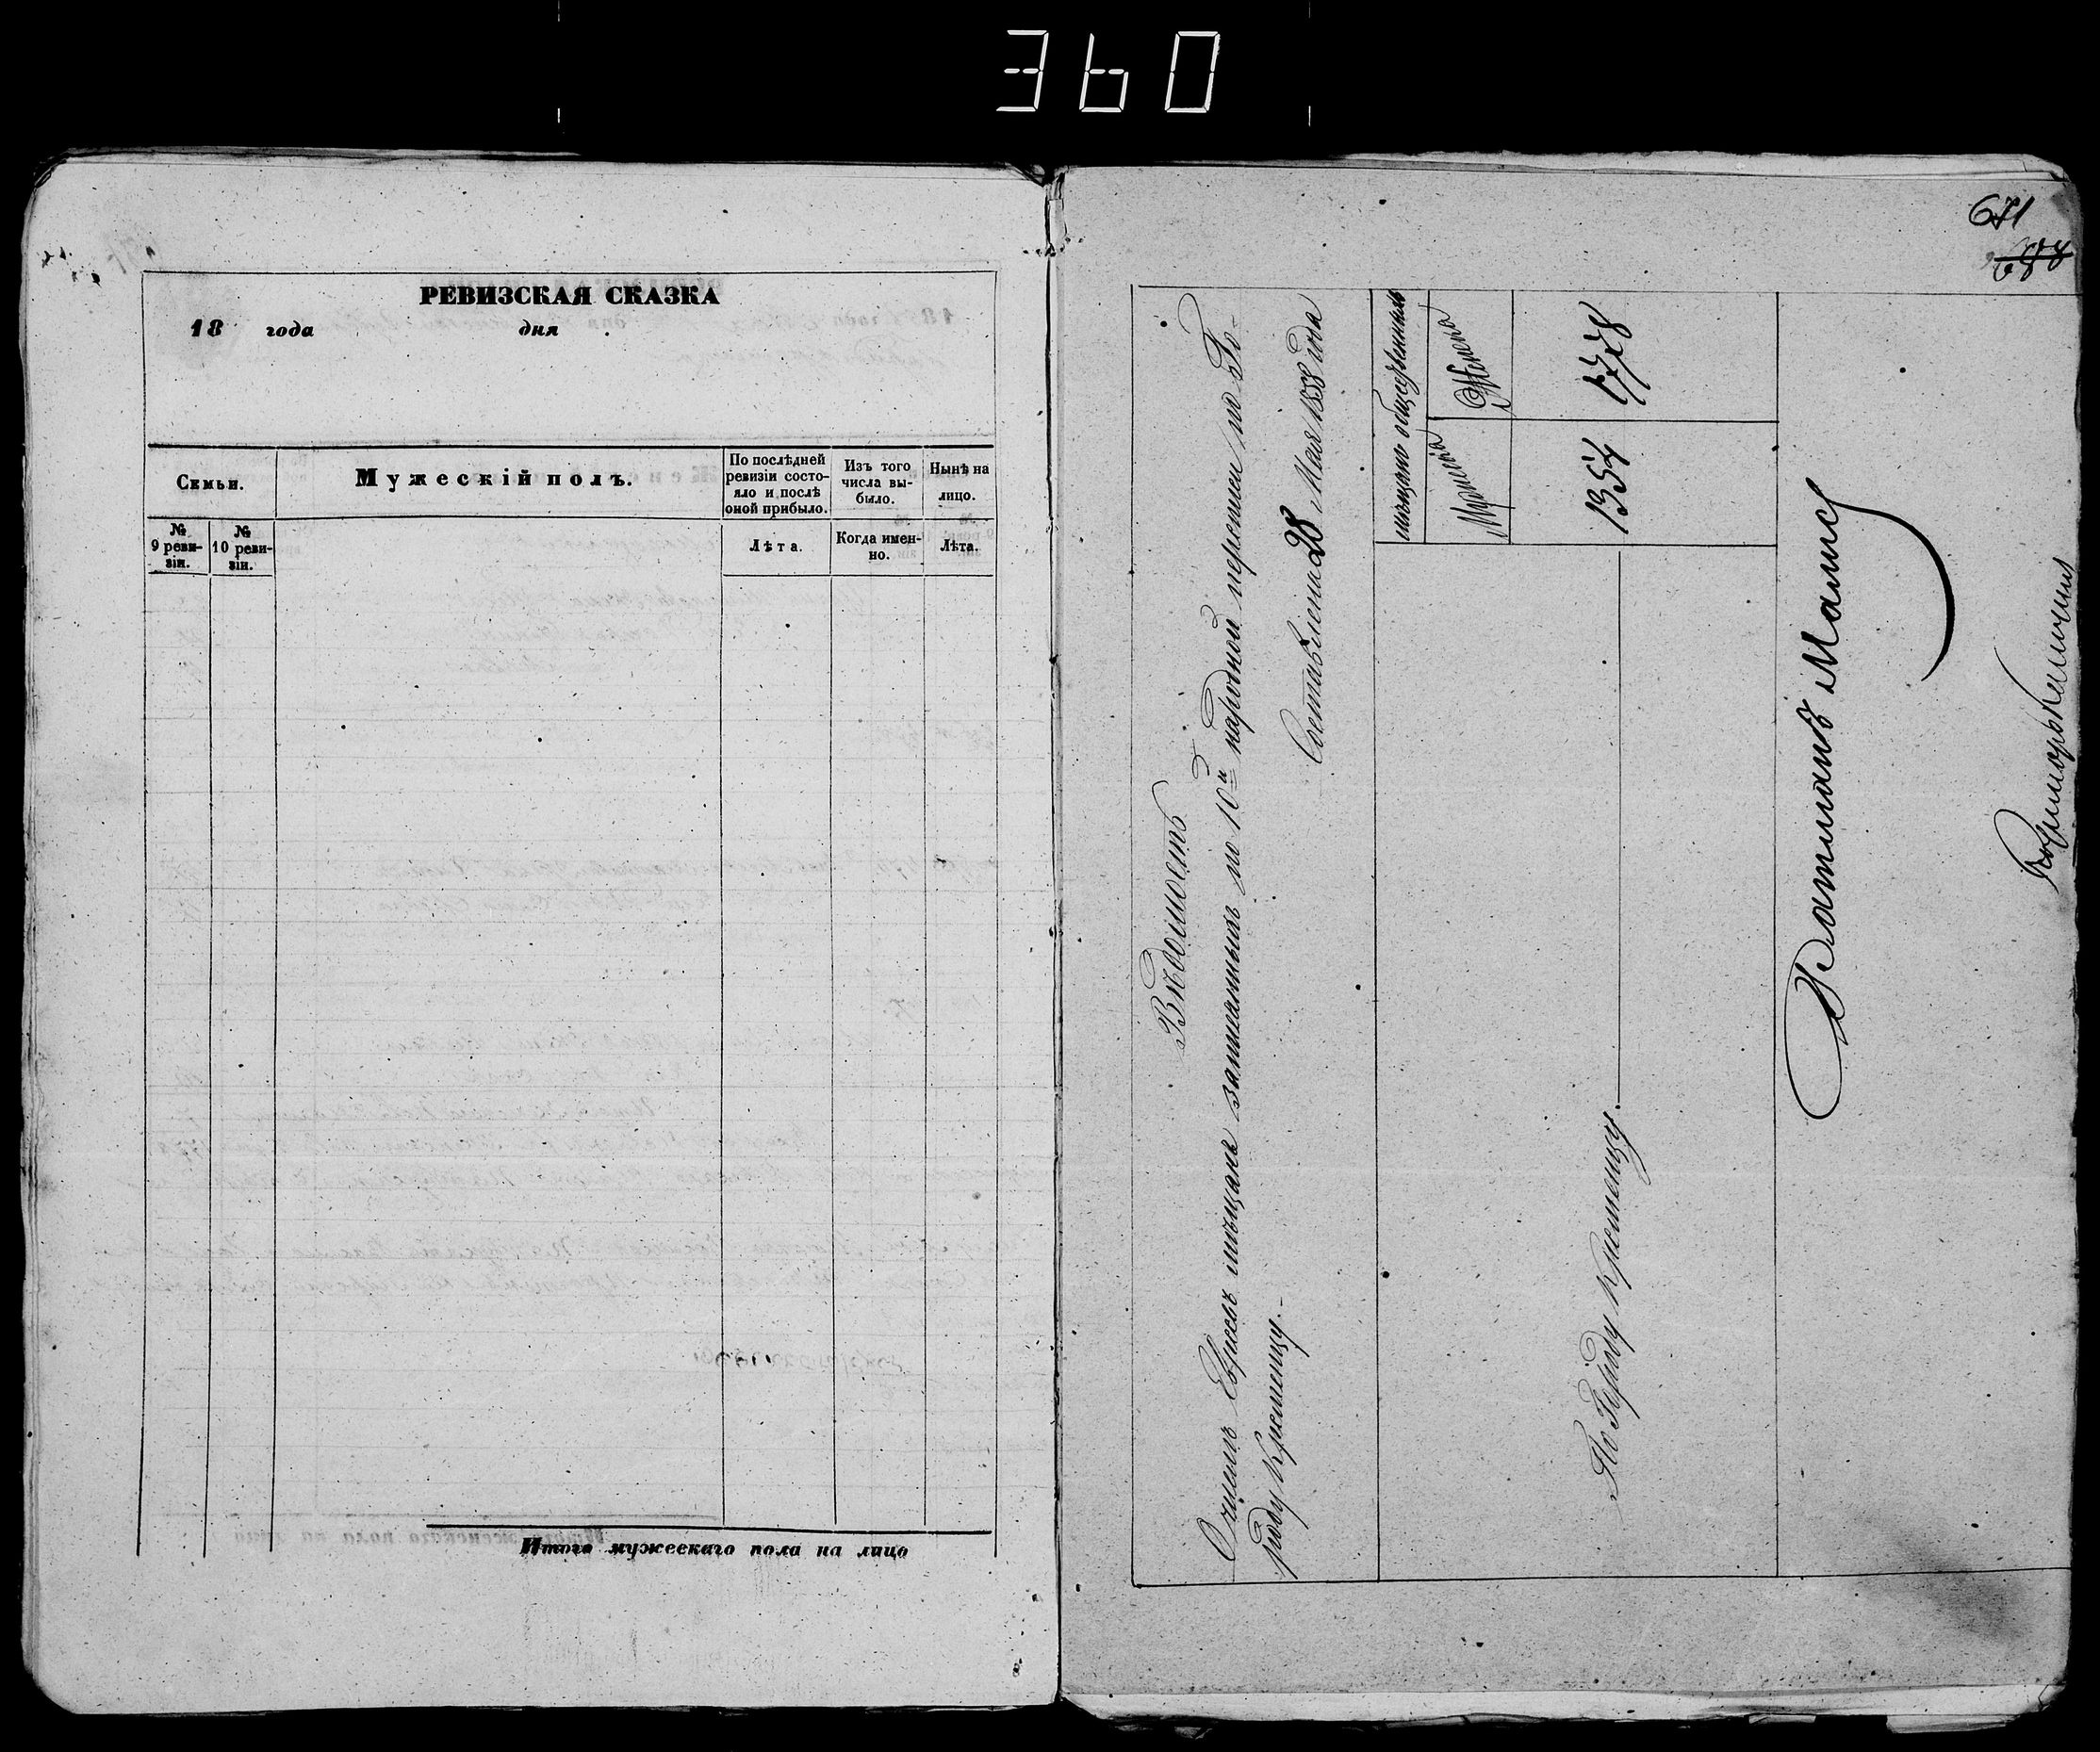 360
РЕВИЗСКАЯ СКАЗКА
18 года дня
Семьи.
Мужескій полъ.
По послѣдней ревизіи состояло и послѣ оной прибыло.
Изъ того числа выбыло.
Нынѣ на лицо.
№ 9 ревизіи.
№ 10 ревизіи.
Лѣта.
Когда именно.
Лѣта.
Итого мужескаго пола на лицо
671
688
Вѣдомость
О числѣ Евреевъ мѣщанъ записанныхъ по 10й народной переписи по Го-
роду Кременцу.
Составлена 28 Мая 1858 года
мѣщанъ
Мужеска
Женска
По Городу Кременцу.
1354
1778
Ратманъ